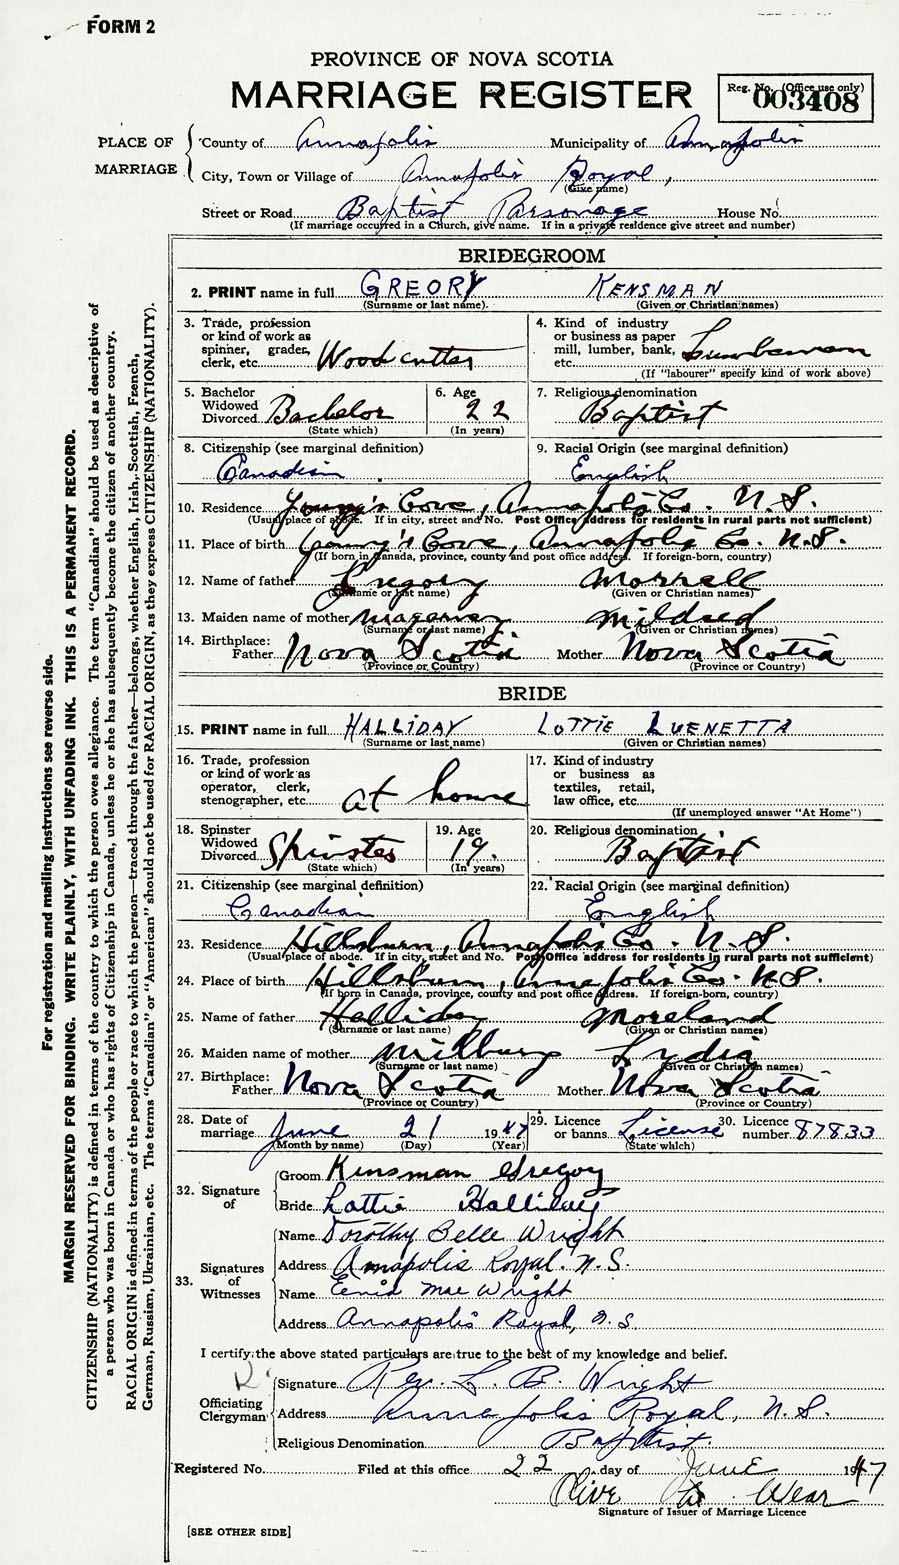 FORM 2
PROVINCE OF NOVA SCOTIA
MARRIAGE REGISTER
Reg. No. (Office use only)
003408
PLACE OF MARRIAGE
County of Annapolis Municipality of Annapolis
City, Town or Village of Annapolis Royal,
(Give name)
Street or Road Baptist Parsonage House No.
(If marriage occurred in a Church, give name. If in a private residence give street and number)
BRIDEGROOM
2. PRINT name in full GREORY KENSMAN
(Surname or last name). (Given or Christian names)
3. Trade, profession or kind of work as spinner, grader, clerk, etc. Woodcutter
4. Kind of industry or business as paper mill, lumber, bank, etc. Lumberman
(If "labourer" specify kind of work above)
5. Bachelor Widowed Divorced Bachelor
(State which)
6. Age 22
(In years)
7. Religious denomination Baptist
8. Citizenship (see marginal definition) Canadian
9. Racial Origin (see marginal definition) English
10. Residence Young's Cove, Annapolis Co. N.S.
(Usual place of abode. If in city, street and No. Post Office address for residents in rural parts not sufficient)
11. Place of birth Young's Cove, Annapolis Co. N.S.
(If born in Canada, province, county and post office address. If foreign-born, country)
12. Name of father Gregory Morrell
(Surname or last name) (Given or Christian names)
13. Maiden name of mother Mildred
(Surname or last name) (Given or Christian names)
14. Birthplace: Father Nova Scotia Mother Nova Scotia
(Province or Country) (Province or Country)
BRIDE
15. PRINT name in full HALLIDAY LOTTIE LUENETTA
(Surname or last name) (Given or Christian names)
16. Trade, profession or kind of work as operator, clerk, stenographer, etc. at home
17. Kind of industry or business as textiles, retail, law office, etc.
(If unemployed answer "At Home")
18. Spinster Widowed Divorced Spinster
(State which)
19. Age 19.
(In years)
20. Religious denomination Baptist
21. Citizenship (see marginal definition) Canadian
22. Racial Origin (see marginal definition) English
23. Residence Hillsburn, Annapolis Co. N.S.
(Usual place of abode. If in city, street and No. Post Office address for residents in rural parts not sufficient)
24. Place of birth Hillsburn, Annapolis Co. N.S.
(If born in Canada, province, county and post office address. If foreign-born, country)
25. Name of father Halliday Moreland
(Surname or last name) (Given or Christian names)
26. Maiden name of mother Milbury Lydia
(Surname or last name) (Given or Christian names)
27. Birthplace: Father Nova Scotia Mother Nova Scotia
(Province or Country) (Province or Country)
28. Date of marriage June 21 1947
(Month by name) (Day) (Year)
29. Licence or banns License
(State which)
30. Licence number 87833
32. Signature of
Groom Kinsman Gregory
Bride Lottie Halliday
33. Signatures of Witnesses
Name Dorothy Belle Wright
Address Annapolis Royal. N.S.
Name Enid Mae Wright
Address Annapolis Royal, N.S.
I certify the above stated particulars are true to the best of my knowledge and belief.
Officiating Clergyman
Signature Rev. L. B. Wright
Address Annapolis Royal, N.S.
Religious Denomination Baptist.
Registered No. Filed at this office 22 day of June 1947
Wear
Signature of Issuer of Marriage Licence
[SEE OTHER SIDE]
For registration and mailing instructions see reverse side.
MARGIN RESERVED FOR BINDING. WRITE PLAINLY, WITH UNFADING INK. THIS IS A PERMANENT RECORD.
CITIZENSHIP (NATIONALITY) is defined in terms of the country to which the person owes allegiance. The term "Canadian" should be used as descriptive of
a person who was born in Canada or who has rights of Citizenship in Canada, unless he or she has subsequently become the citizen of another country.
RACIAL ORIGIN is defined in terms of the people or race to which the person—traced through the father—belongs, whether English, Irish, Scottish, French,
German, Russian, Ukrainian, etc. The terms "Canadian" or "American" should not be used for RACIAL ORIGIN, as they express CITIZENSHIP (NATIONALITY).